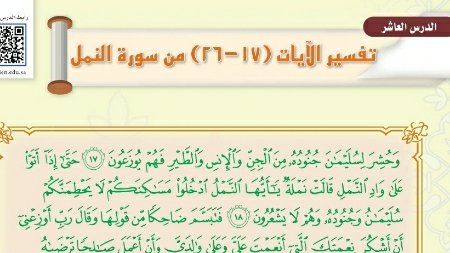 رابط الدرس
الدرس العاشر
تفسير الآيات (١٧-٢٦) من سورة النمل
وَحُشِرَ لِسُلَيْمَٰنَ جُنُودُهُۥ مِنَ ٱلْجِنِّ وَٱلْإِنسِ وَٱلطَّيْرِ فَهُمْ يُوزَعُونَ ١٧ حَتَّىٰٓ إِذَآ أَتَوْا۟
عَلَىٰ وَادِ ٱلنَّمْلِ قَالَتْ نَمْلَةٌ يَٰٓأَيُّهَا ٱلنَّمْلُ ٱدْخُلُوا۟ مَسَٰكِنَكُمْ لَا يَحْطِمَنَّكُمْ
سُلَيْمَٰنُ وَجُنُودُهُۥ وَهُمْ لَا يَشْعُرُونَ ١٨ فَتَبَسَّمَ ضَاحِكًا مِّن قَوْلِهَا وَقَالَ رَبِّ أَوْزِعْنِىٓ
أَنْ أَشْكُرَ نِعْمَتَكَ ٱلَّتِىٓ أَنْعَمْتَ عَلَىَّ وَعَلَىٰ وَٰلِدَىَّ وَأَنْ أَعْمَلَ صَٰلِحًا تَرْضَىٰهُ